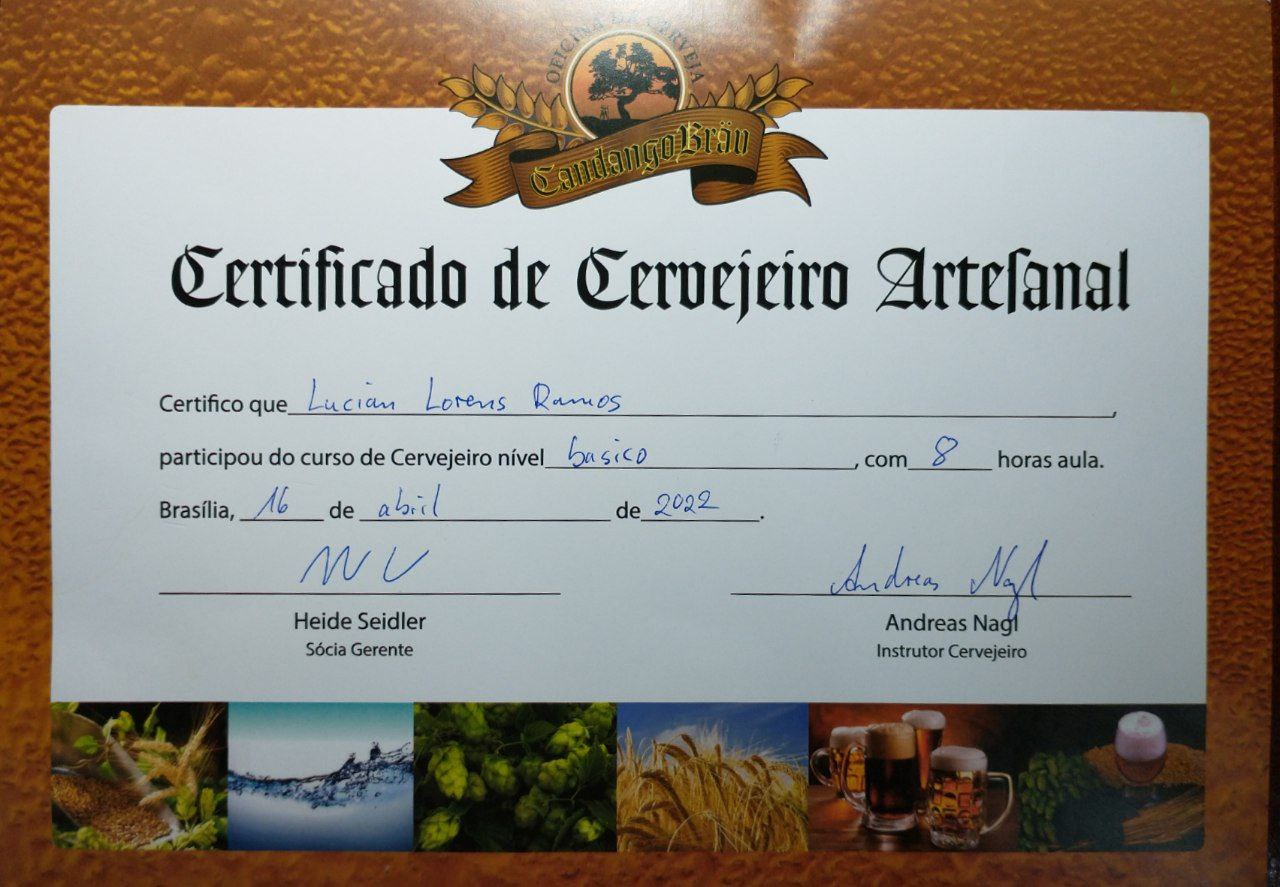 OFICINA DA CERVEJA
CandangoBräu
Certificado de Cervejeiro Artesanal
Certifico que Lucian Lorens Ramos,
participou do curso de Cervejeiro nível basico, com 8 horas aula.
Brasília, 16 de abril de 2022.
Andreas Nagl
Heide Seidler Andreas Nagl
Sócia Gerente Instrutor Cervejeiro